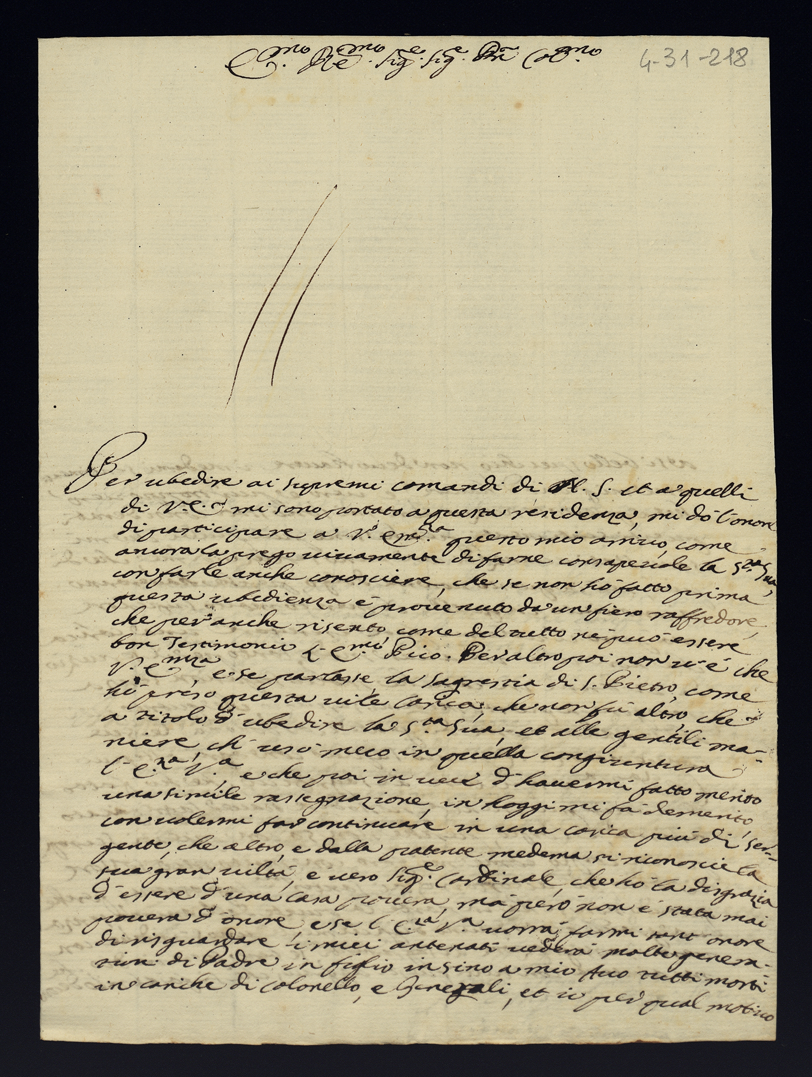 E.mo Re.mo Sig.e Sig.e P̃rn Col.mo
4-31-218
Per ubedire ai supremi comandi di N. S. et a quelli
di V. E. mi sono portato a questa residenza, mi dò l'onore
di participare a V. Em.za questo mio arrivo, come
ancora la prego vivamente di farne consapevole la S.tà Sua,
con farle anche conosciere, che se non hò fatto prima
questa ubedienza è provenuto da un fiero raffredore,
che per anche risento, come del tutto ne può essere
bon Testimonio l'E.mo Pico. Per altro poi non v'è che
V. E.mza, e se parlasse la sagrestia di S. Pietro, come
hò preso questa vile carica, che non fù altro, che
a titolo d'ubedire la S.tà Sua, et alle gentili ma-
niere, ch'usò meco in quella congiuntura
l'E.za V.a e che poi in vece d'havermi fatto merito
una simile rassegnazione, in hoggi mi fà demerito
con volermi far continuare in una carica più di ser-
gente, che altro, e dalla patente medema si riconoscie la
sua gran viltà, e vero Sig.e Cardinale, che hò la disgrazia
d'essere d'una casa povera, ma però non è stata mai
povera d'onore, e se l'E.za V.a vorrà farmi tant'onore
di risguardare i miei antenati vederà molte genera-
zioni di Padre in figlio in sino a mio Avo tutti morti
in cariche di Colonello, e Generali, et io per qual motivo